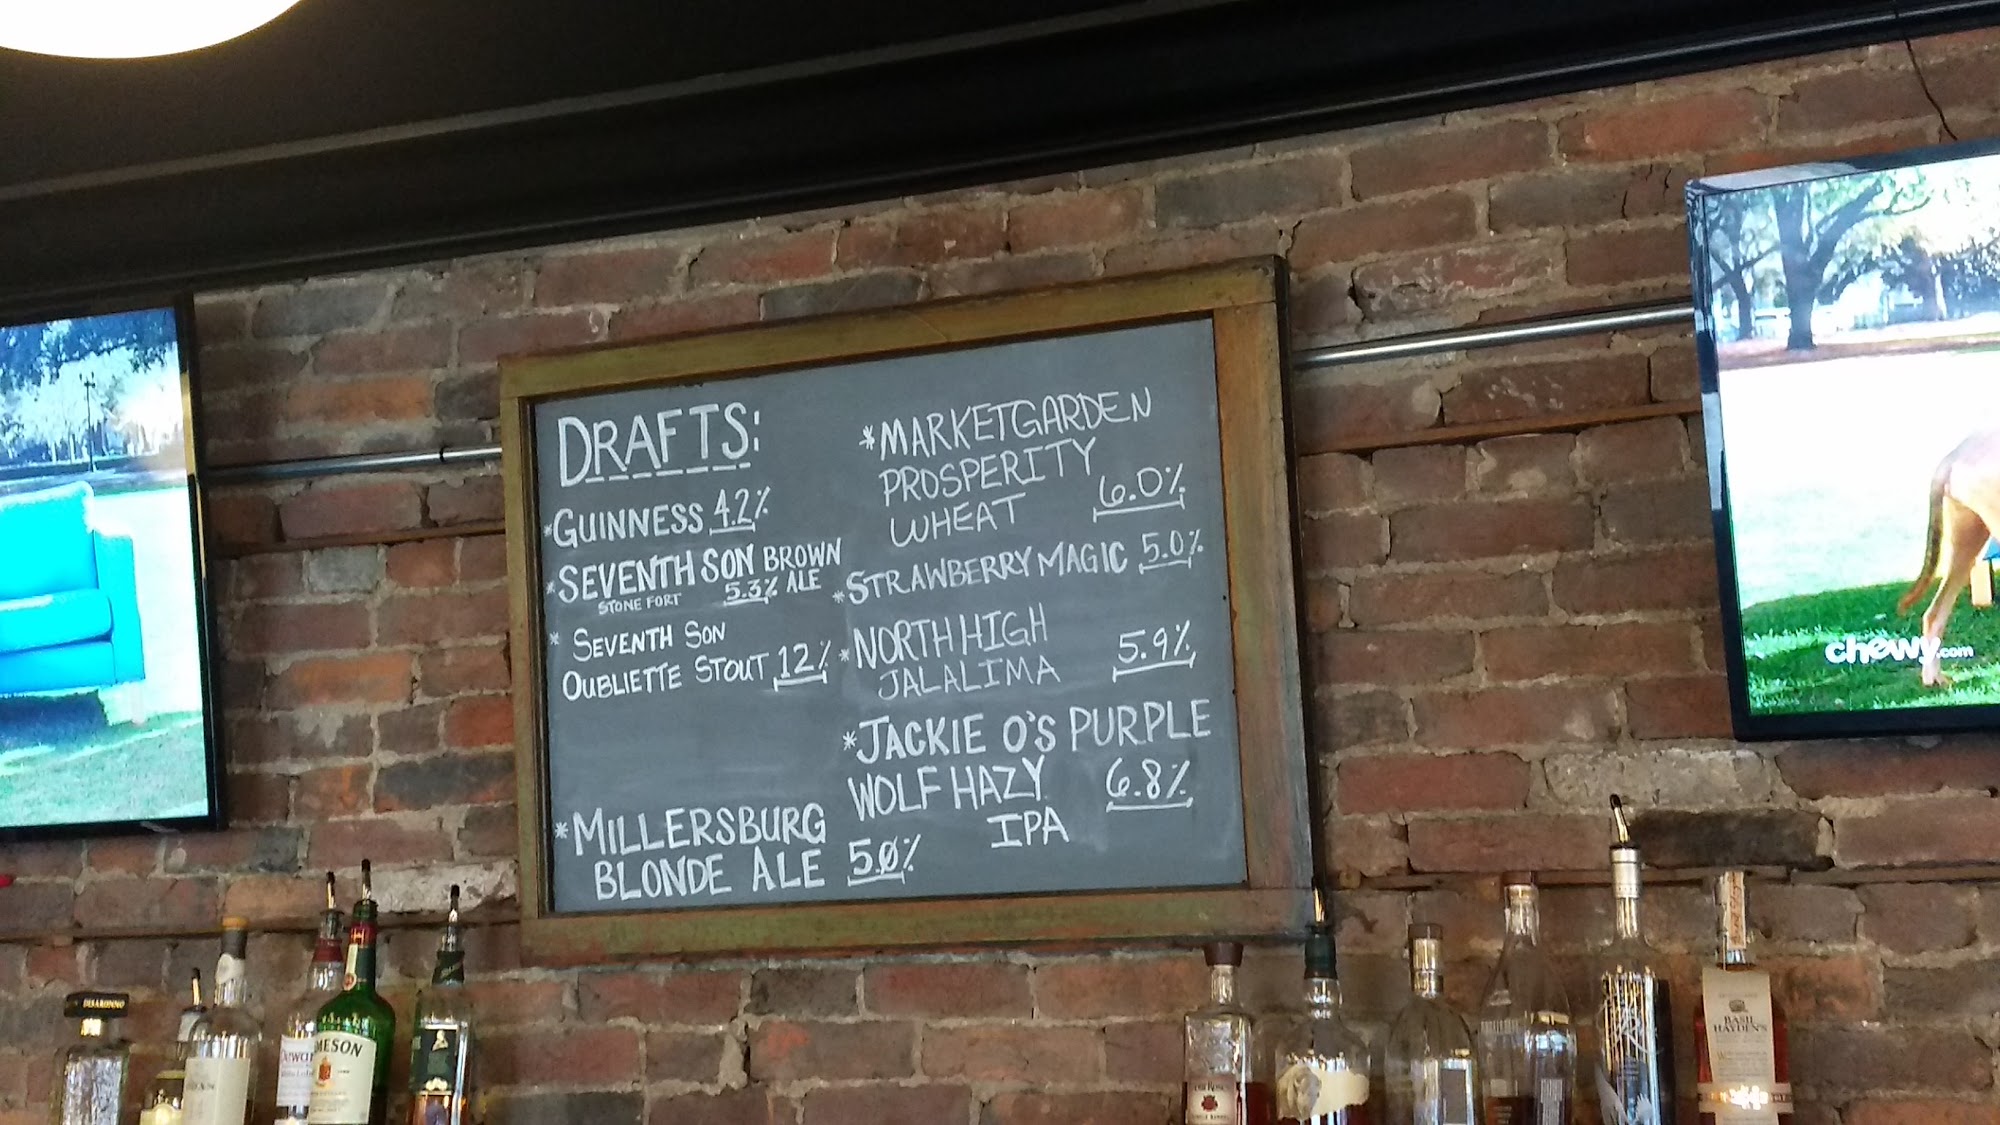 DRAFTS:
*GUINNESS 4.2%
*SEVENTH SON BROWN
STONE FORT 5.3% ALE
* SEVENTH SON
OUBLIETTE STOUT 12%
*MILLERSBURG
BLONDE ALE 5.0%
*MARKETGARDEN
PROSPERITY
WHEAT 6.0%
*STRAWBERRY MAGIC 5.0%
*NORTH HIGH
JALALIMA 5.9%
*JACKIE O'S PURPLE
WOLF HAZY 6.8%
IPA
chewy.com
DISARONNO
Dewar
MESON
BASIL
HAYDEN'S